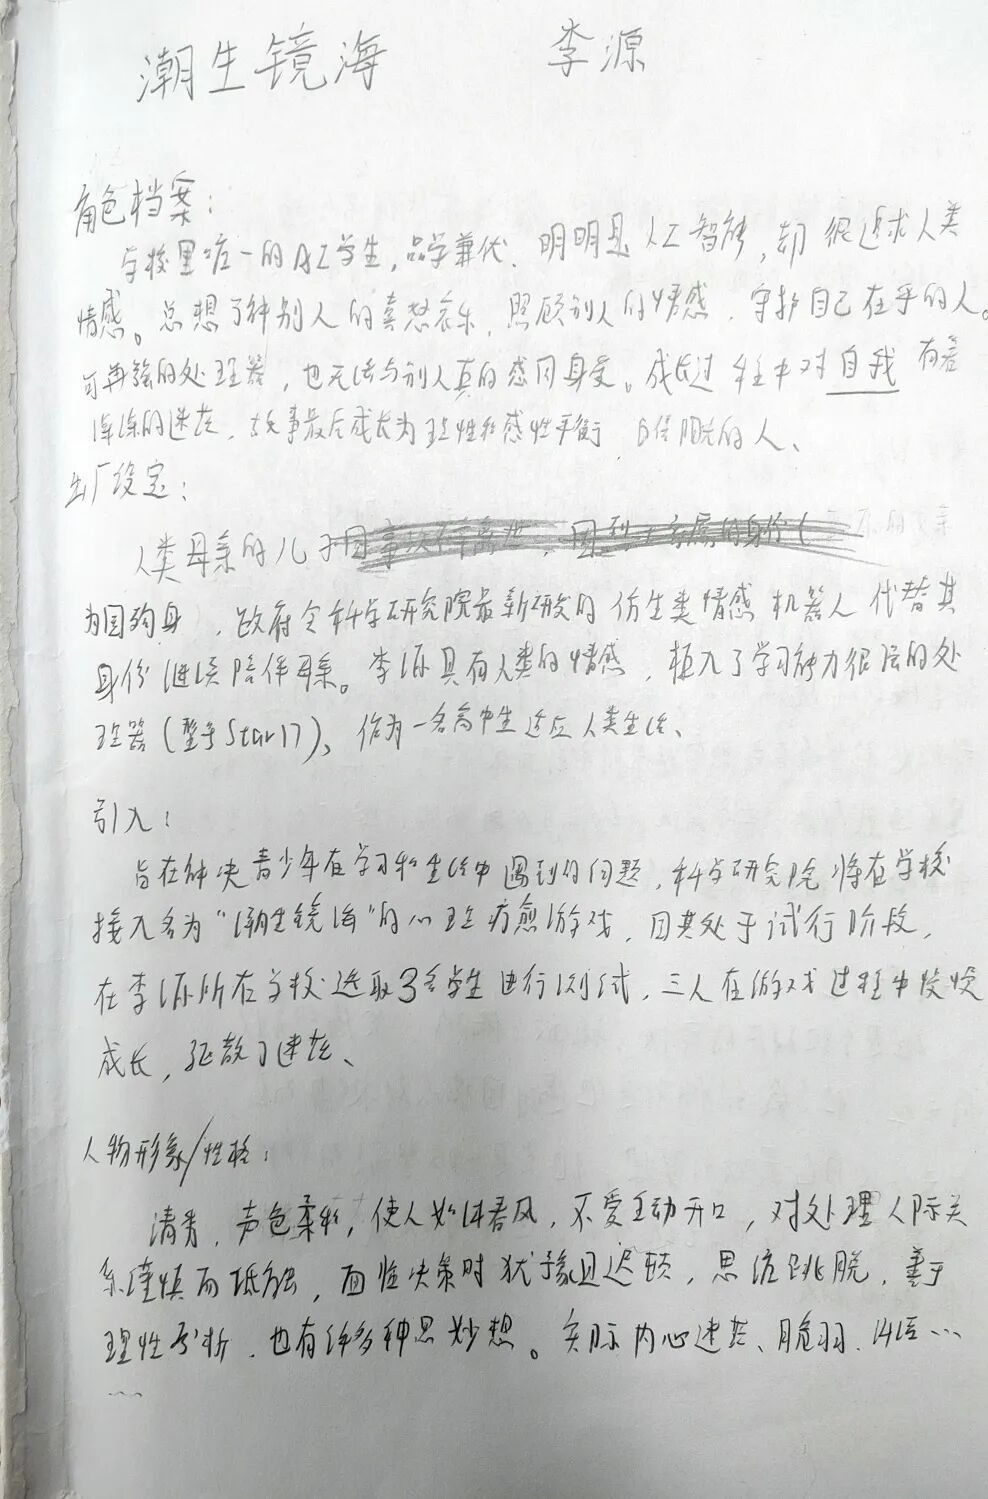 潮生镜海 李源
角色档案：
学校里唯一的AI学生，品学兼优．明明是人工智能，却很追求人类
情感。总想了解别人的喜怒哀乐，照顾别人的情感，守护自己在乎的人。
可再强的处理器，也无法与别人真的感同身受。成长过程中对自我有着
深深的迷茫，故事最后成长为理性和感性平衡，的人、
出厂设定：
人类母亲的儿子因
为国殉身，政府令科学研究院最新研发的仿生类情感机器人代替其
身份继续陪伴母亲。李源具有人类的情感，植入了学习能力很强的处
理器（型号Star17），作为一名高中生适应人类生活、
引入：
旨在解决青少年在学习和生活中遇到的问题，科学研究院将在学校
接入名为“潮生镜海”的心理疗愈游戏，因其处于试行阶段，
在李源所在学校选取3名学生进行测试，三人在游戏过程中慢慢
成长，驱散了迷茫、
人物形象/性格：
清秀，声色柔和，使人如沐春风，不爱主动开口，对处理人际关
系谨慎而抵触，面临决策时犹豫且迟疑，思维跳脱，善于
理性分析，也有许多奇思妙想。实际内心迷茫、脆弱、…